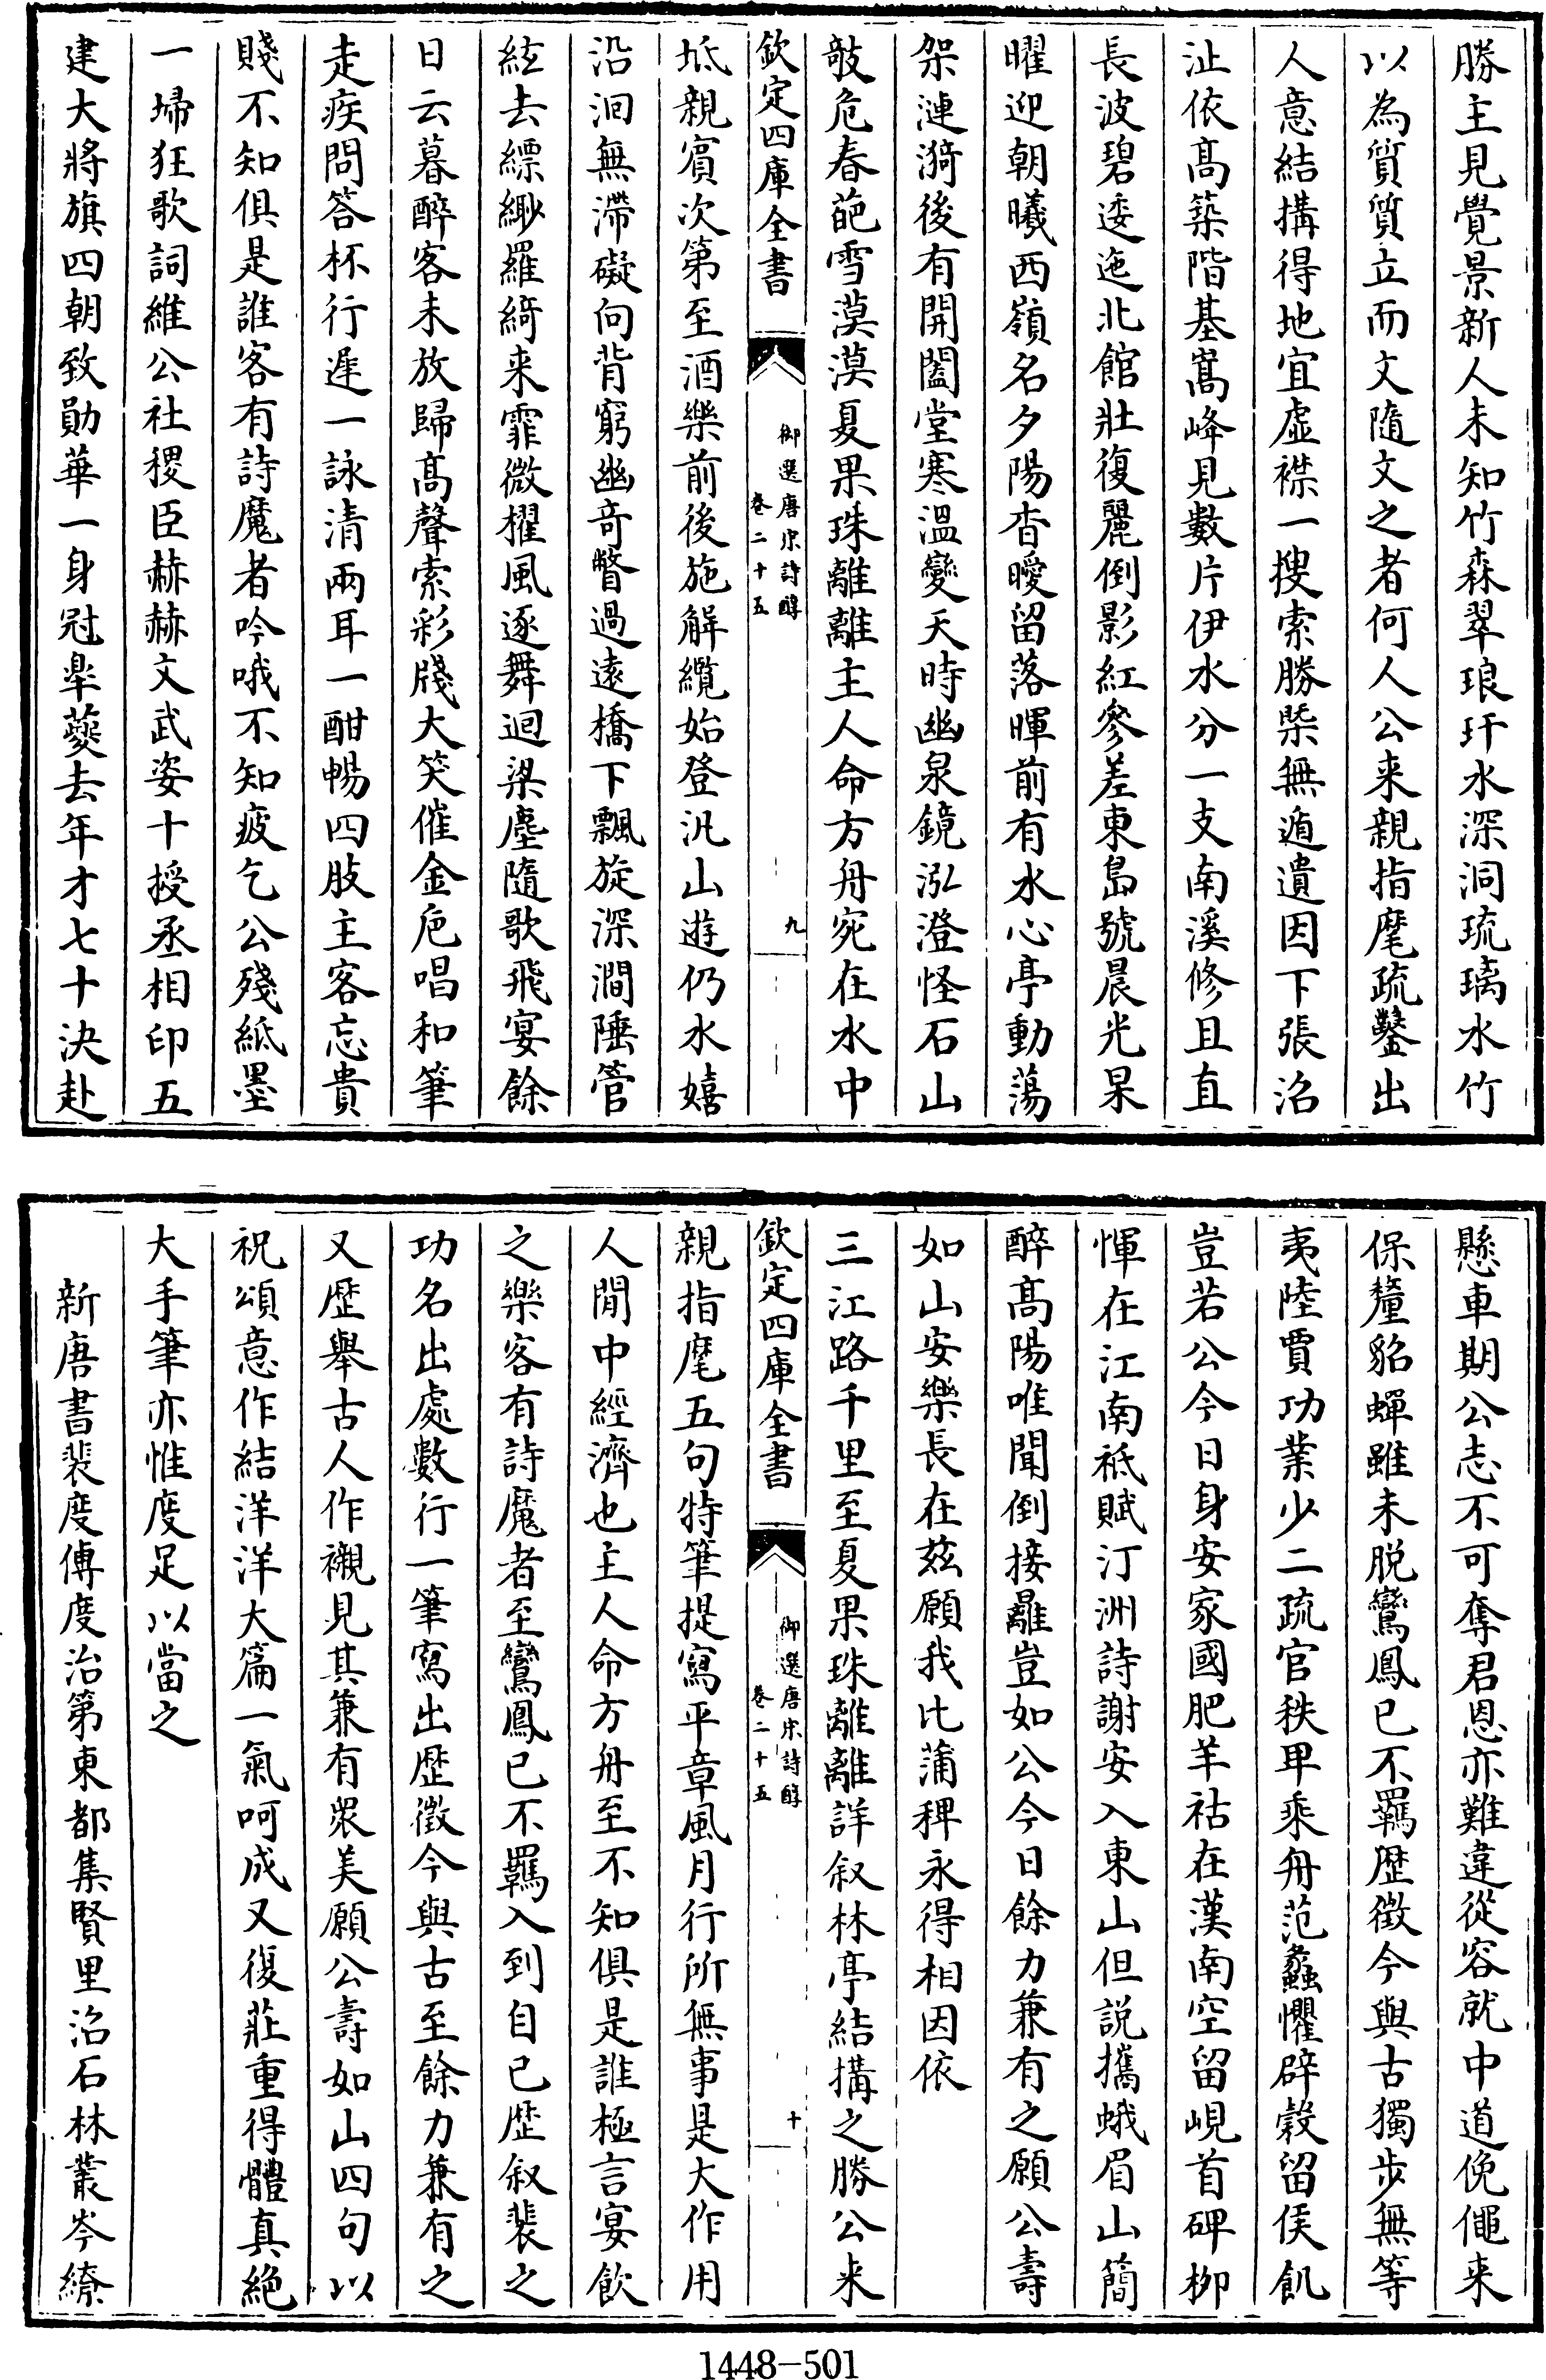 勝主見覺景新人未知竹森翠琅玕水深洞琉璃水竹
以為質質立而文隨文之者何人公来親指麾疏鑿出
人意結搆得地宜虚襟一搜索勝槩無遁遺因下張沿
沚依髙築階基嵩峰見數片伊水分一支南溪修且直
長波碧逶迤北館壯復麗倒影紅參差東島號晨光杲
曜迎朝曦西嶺名夕陽杳曖留落暉前有水心亭動蕩
架漣漪後有開闔堂寒溫變天時幽泉鏡泓澄怪石山
敧危春葩雪漠漠夏果珠離離主人命方舟宛在水中
欽定四庫全書
御選唐宋詩醇
卷二十五
九
坻親賓次第至酒樂前後施解纜始登汎山遊仍水嬉
沿洄無滯礙向背窮幽奇瞥過遠橋下飄旋深澗陲管
絃去縹緲羅綺来霏微櫂風逐舞迴梁塵隨歌飛宴餘
日云暮醉客未放歸髙聲索彩牋大笑催金巵唱和筆
走疾問答杯行遲一詠清兩耳一酣暢四肢主客忘貴
賤不知俱是誰客有詩魔者吟哦不知疲乞公殘紙墨
一埽狂歌詞維公社稷臣赫赫文武姿十授丞相印五
建大將旗四朝致勛華一身冠臯夔去年才七十決赴
懸車期公志不可奪君恩亦難違從容就中道俛僶来
保釐貂蟬雖未脱鸞鳳已不羈歴徴今與古獨步無等
夷陸賈功業少二疏官秩卑乘舟范蠡懼辟榖留侯飢
豈若公今日身安家國肥羊祜在漢南空留峴首碑柳
惲在江南祗賦汀洲詩謝安入東山但説攜蛾眉山簡
醉髙陽唯聞倒接䍦豈如公今日餘力兼有之願公壽
如山安樂長在兹願我比蒲稗永得相因依
三江路千里至夏果珠離離詳叙林亭結搆之勝公来
欽定四庫全書
御選唐宋詩醇
卷二十五
十
親指麾五句特筆提寫平章風月行所無事是大作用
人閒中經濟也主人命方舟至不知俱是誰極言宴飲
之樂客有詩魔者至鸞鳳已不羈入到自己歴叙裴之
功名出處數行一筆寫出歴徴今與古至餘力兼有之
又歴舉古人作襯見其兼有衆美願公壽如山四句以
祝頌意作結洋洋大篇一氣呵成又復莊重得體真絶
大手筆亦惟度足以當之
新唐書裴度傳度治第東都集賢里沼石林叢岑繚
1448-501